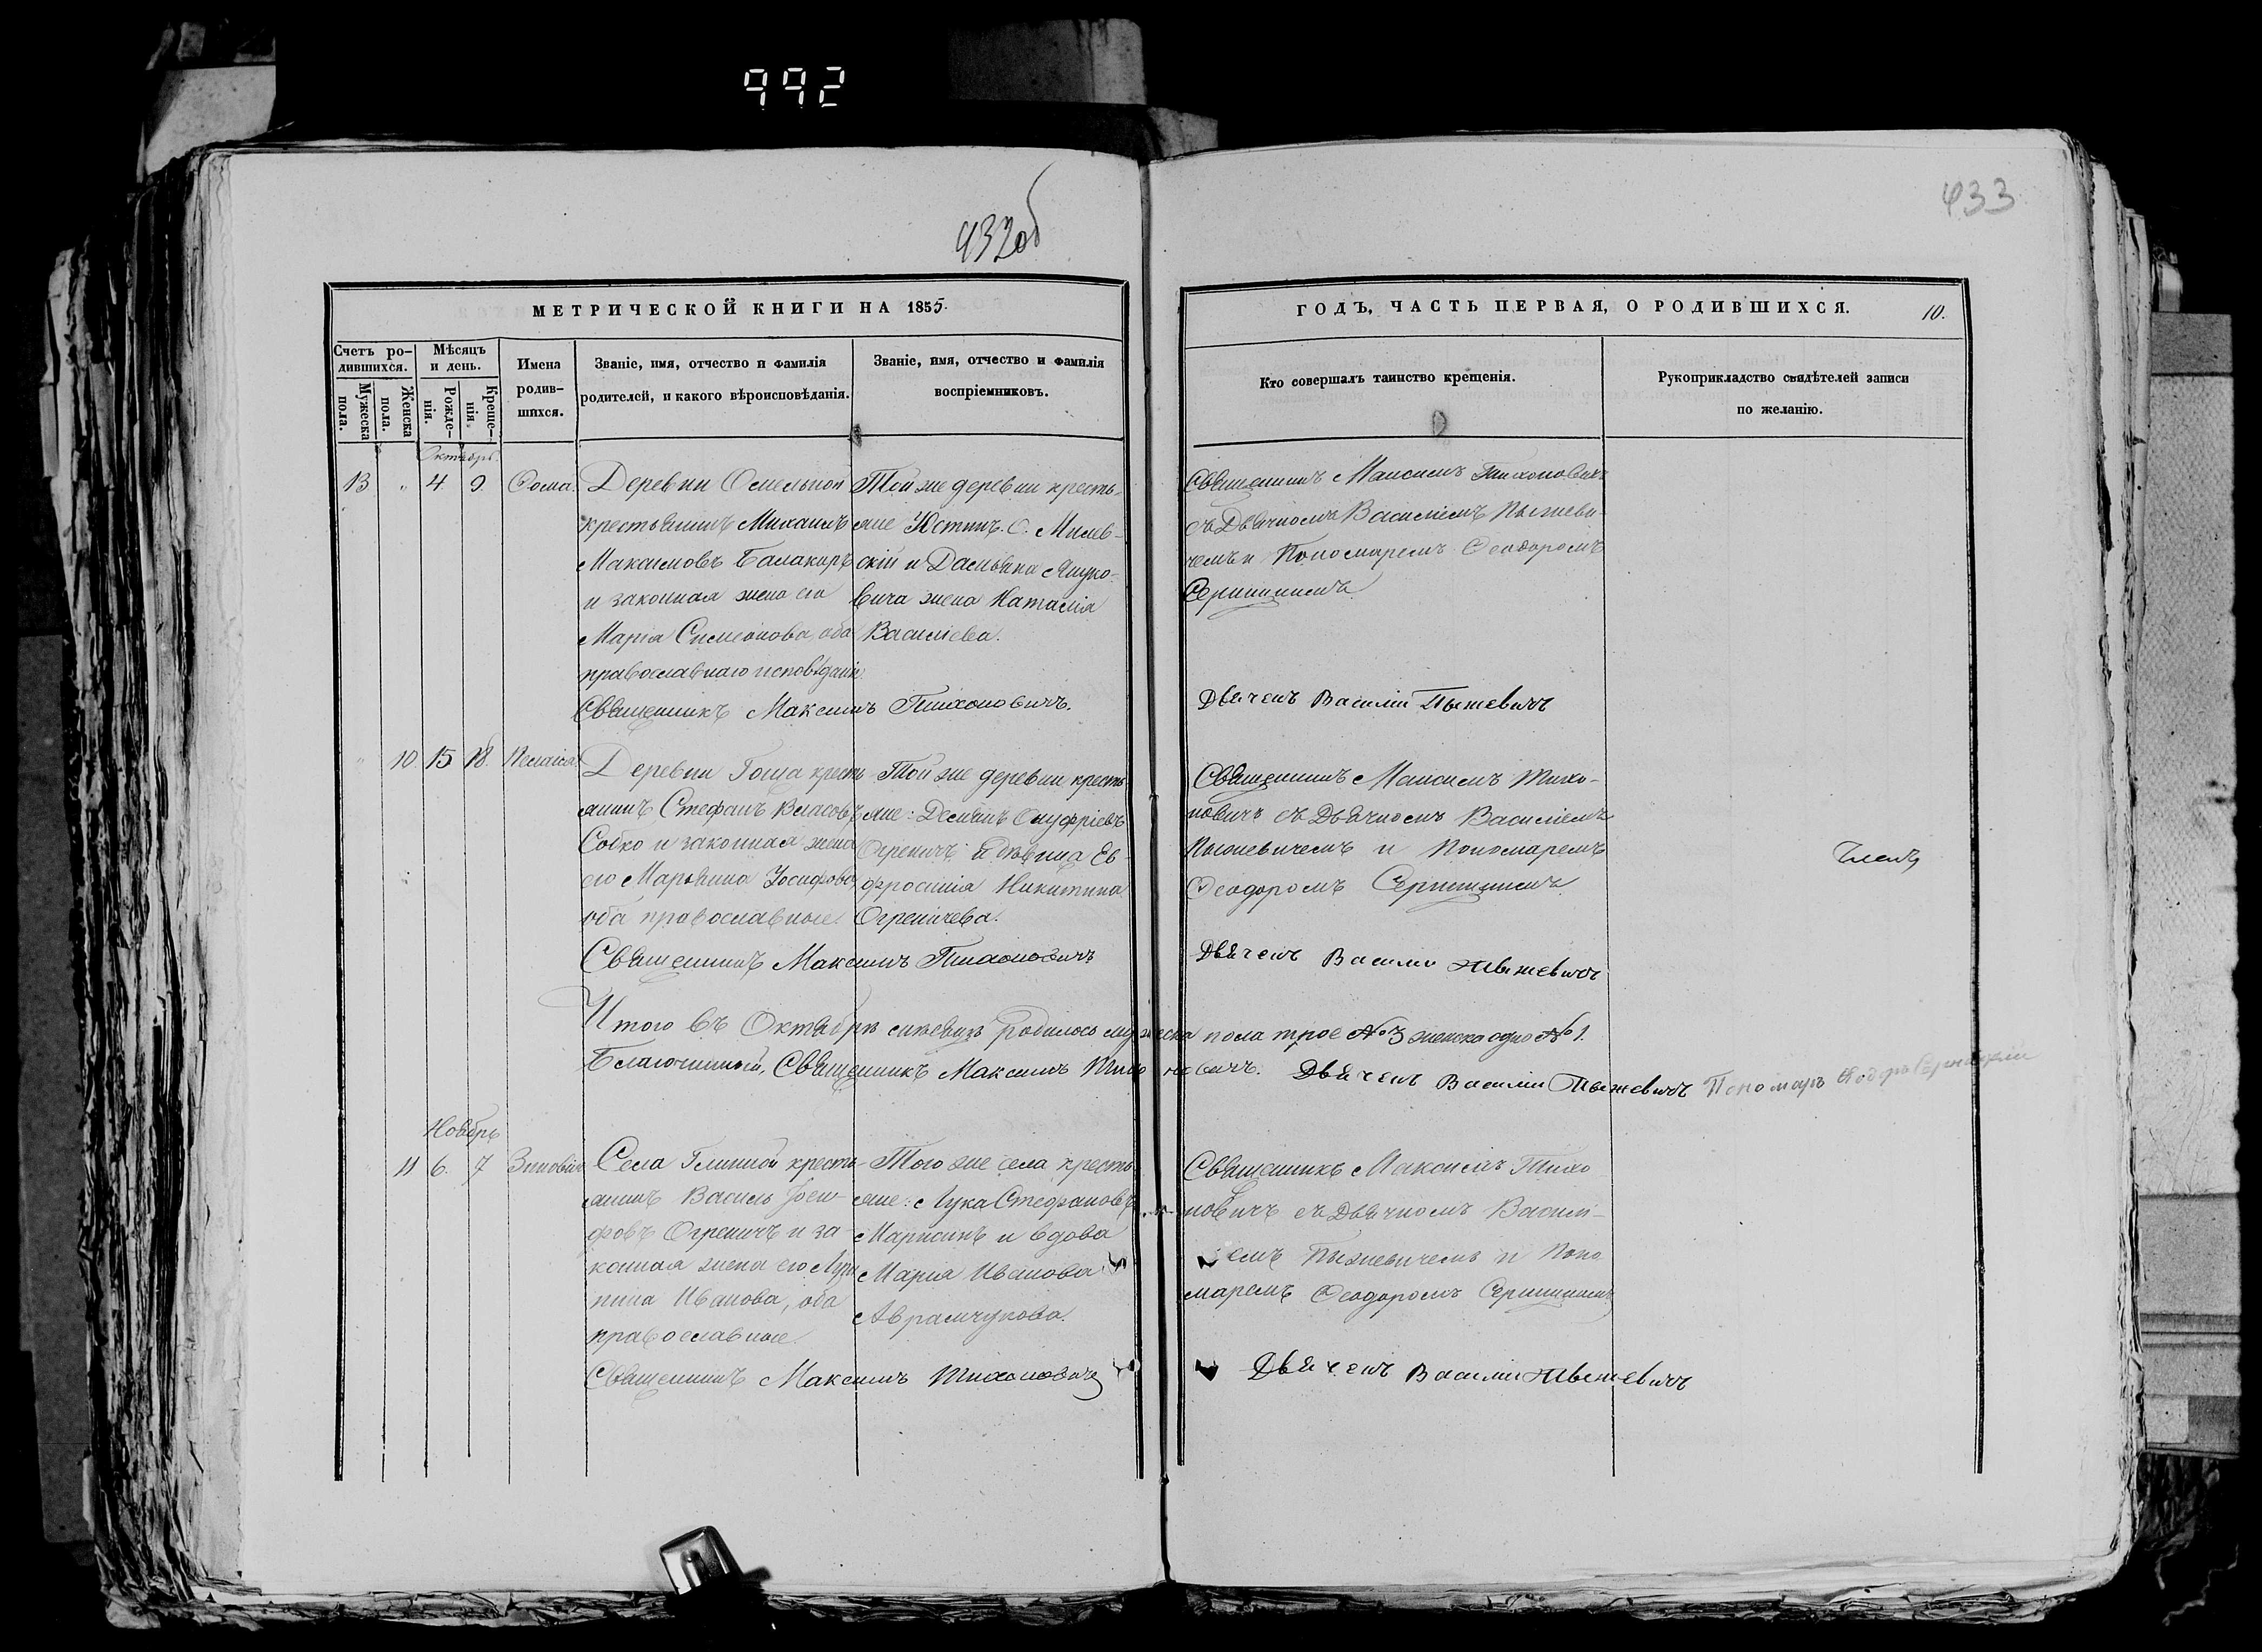 992
432об
433
МЕТРИЧЕСКОЙ КНИГИ НА 1855.
ГОДЪ, ЧАСТЬ ПЕРВАЯ, О РОДИВШИХСЯ.
10.
Счетъ ро-
дившихся.
Мужеска
пола.
Женска
пола.
Мѣсяцъ
и день.
Рожде-
нія.
Креще-
нія.
Имена
родив-
шихся.
Званіе, имя, отчество и фамилія
родителей, и какого вѣроисповѣданія.
Званіе, имя, отчество и фамилія
воспріемниковъ.
Кто совершалъ таинство крещенія.
Рукоприкладство свидѣтелей записи
по желанію.
Октябрь
13 " 4. 9. Ѳома.
Деревни Осмельной
крестьянинъ Михаилъ
Максимовъ Балакиръ
и законная жена его
Марія Симеонова, оба
православнаго исповѣданія.
Той же деревни кресть-
яне Юстинъ. С. Милев-
скій и Даміяна Яцуко-
вича жена Наталія
Василіева.
Священникъ Максимъ Тихоновичъ.
Священникъ Максимъ Тихоновичъ
съ Дьячкомъ Василіемъ Пыжеви-
чемъ и Пономаремъ Ѳеодоромъ
Дьячекъ Василій Пыжевичъ
" 10. 15 18. Пелагія
Деревни Гоща кресть-
янинъ Стефанъ Власовъ
Собко и законная жена
его Марьяна Іосифова,
оба православные.
Той же деревни кресть-
яне: Деміянъ Онуфріевъ
Огреничъ и дѣвица Ев-
фросинія Никитина
Огреничева.
Священникъ Максимъ Тихоновичъ
Священникъ Максимъ Тихо-
новичъ съ Дьячкомъ Василіемъ
Пыжевичемъ и Пономаремъ
Ѳеодоромъ
Дьячекъ Василій Пыжевичъ
Итого въ Октябрѣ мѣсяцѣ родилось мужеска пола трое №3 женска одно №1.
Благочинный, Священникъ Максимъ Тихоновичъ. Дьячекъ Василій Пыжевичъ Пономарь
Ноябрь
11 6. 7 Зиновія
Села Глинной кресть-
янинъ Василь Іоси-
фовъ Огреничъ и за-
конная жена его Луки-
нина Иванова, оба
православные.
Того же села кресть-
яне: Лука Стефановъ
Марисикъ и вдова
Марія Иванова
Аврамчукова.
Священникъ Максимъ Тихоновичъ
Священникъ Максимъ Тихо-
новичъ съ Дьячкомъ Василі-
емъ Пыжевичемъ и Поно-
маремъ Ѳеодоромъ
Дьячекъ Василій Пыжевичъ